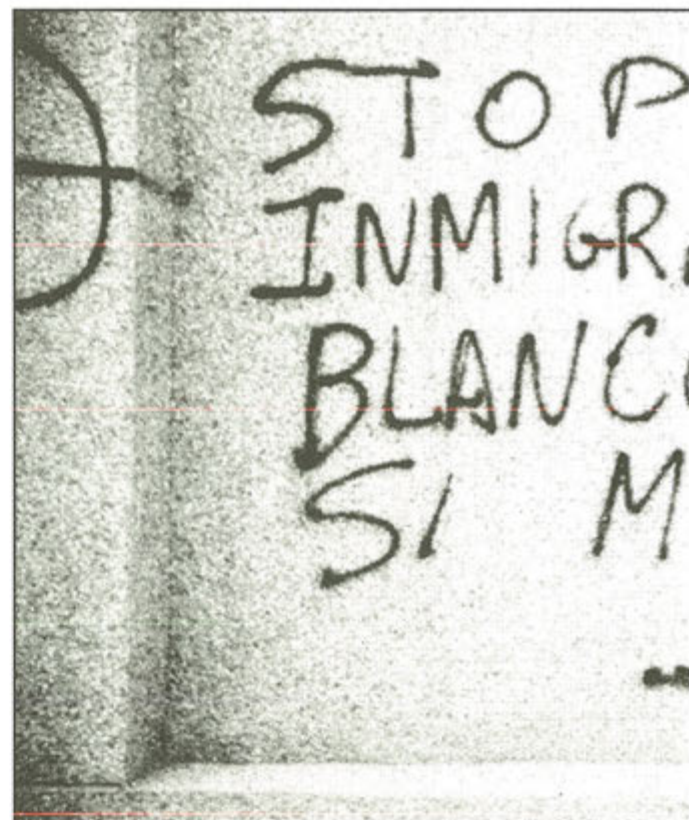 STOP
INMIGR
BLANC
SI M